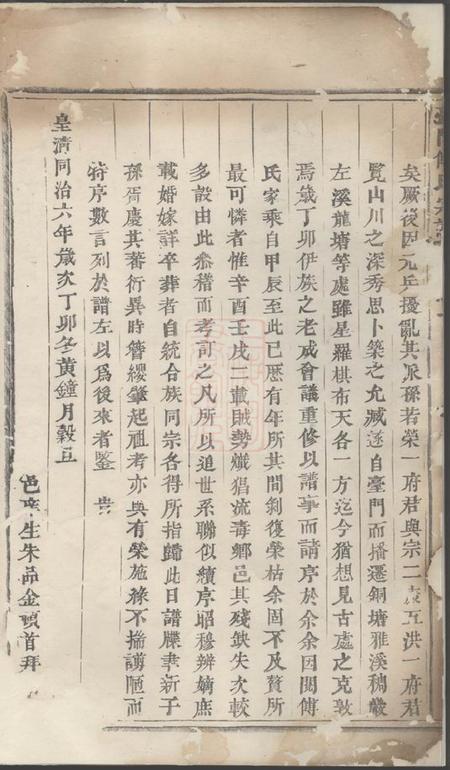 矣厥後因元兵擾亂其派孫若榮一府君與宗二袁五洪一府君
覽山川之深秀思卜築之允臧遂自臺門而播遷銅塘雅溪稠巖
左溪龍塘等處雖星羅棋布天各一方迄今猶想見古處之克敦
焉歲丁卯伊族之老成會議重修以譜事而請序於余余因閱傅
氏家乘自甲辰至此已歷有年所其間剝復榮枯余固不及贅所
最可憐者惟辛酉壬戌二載賊勢熾猖流毒鄉邑其殘缺失次較
多設由此叅稽而考訂之凡所以追世系聯似續序昭穆辨嫡庶
載婚嫁詳卒葬者自統合族同宗各得所指歸此日譜牒聿新子
孫胥慶其蕃衍異時簪纓肇起祖考亦與有榮施祿不揣謭陋而
特序數言列於譜左以為後來者鑒 告
皇清同治六年歲次丁卯冬黃鐘月穀旦
邑庠生朱品金頓首拜